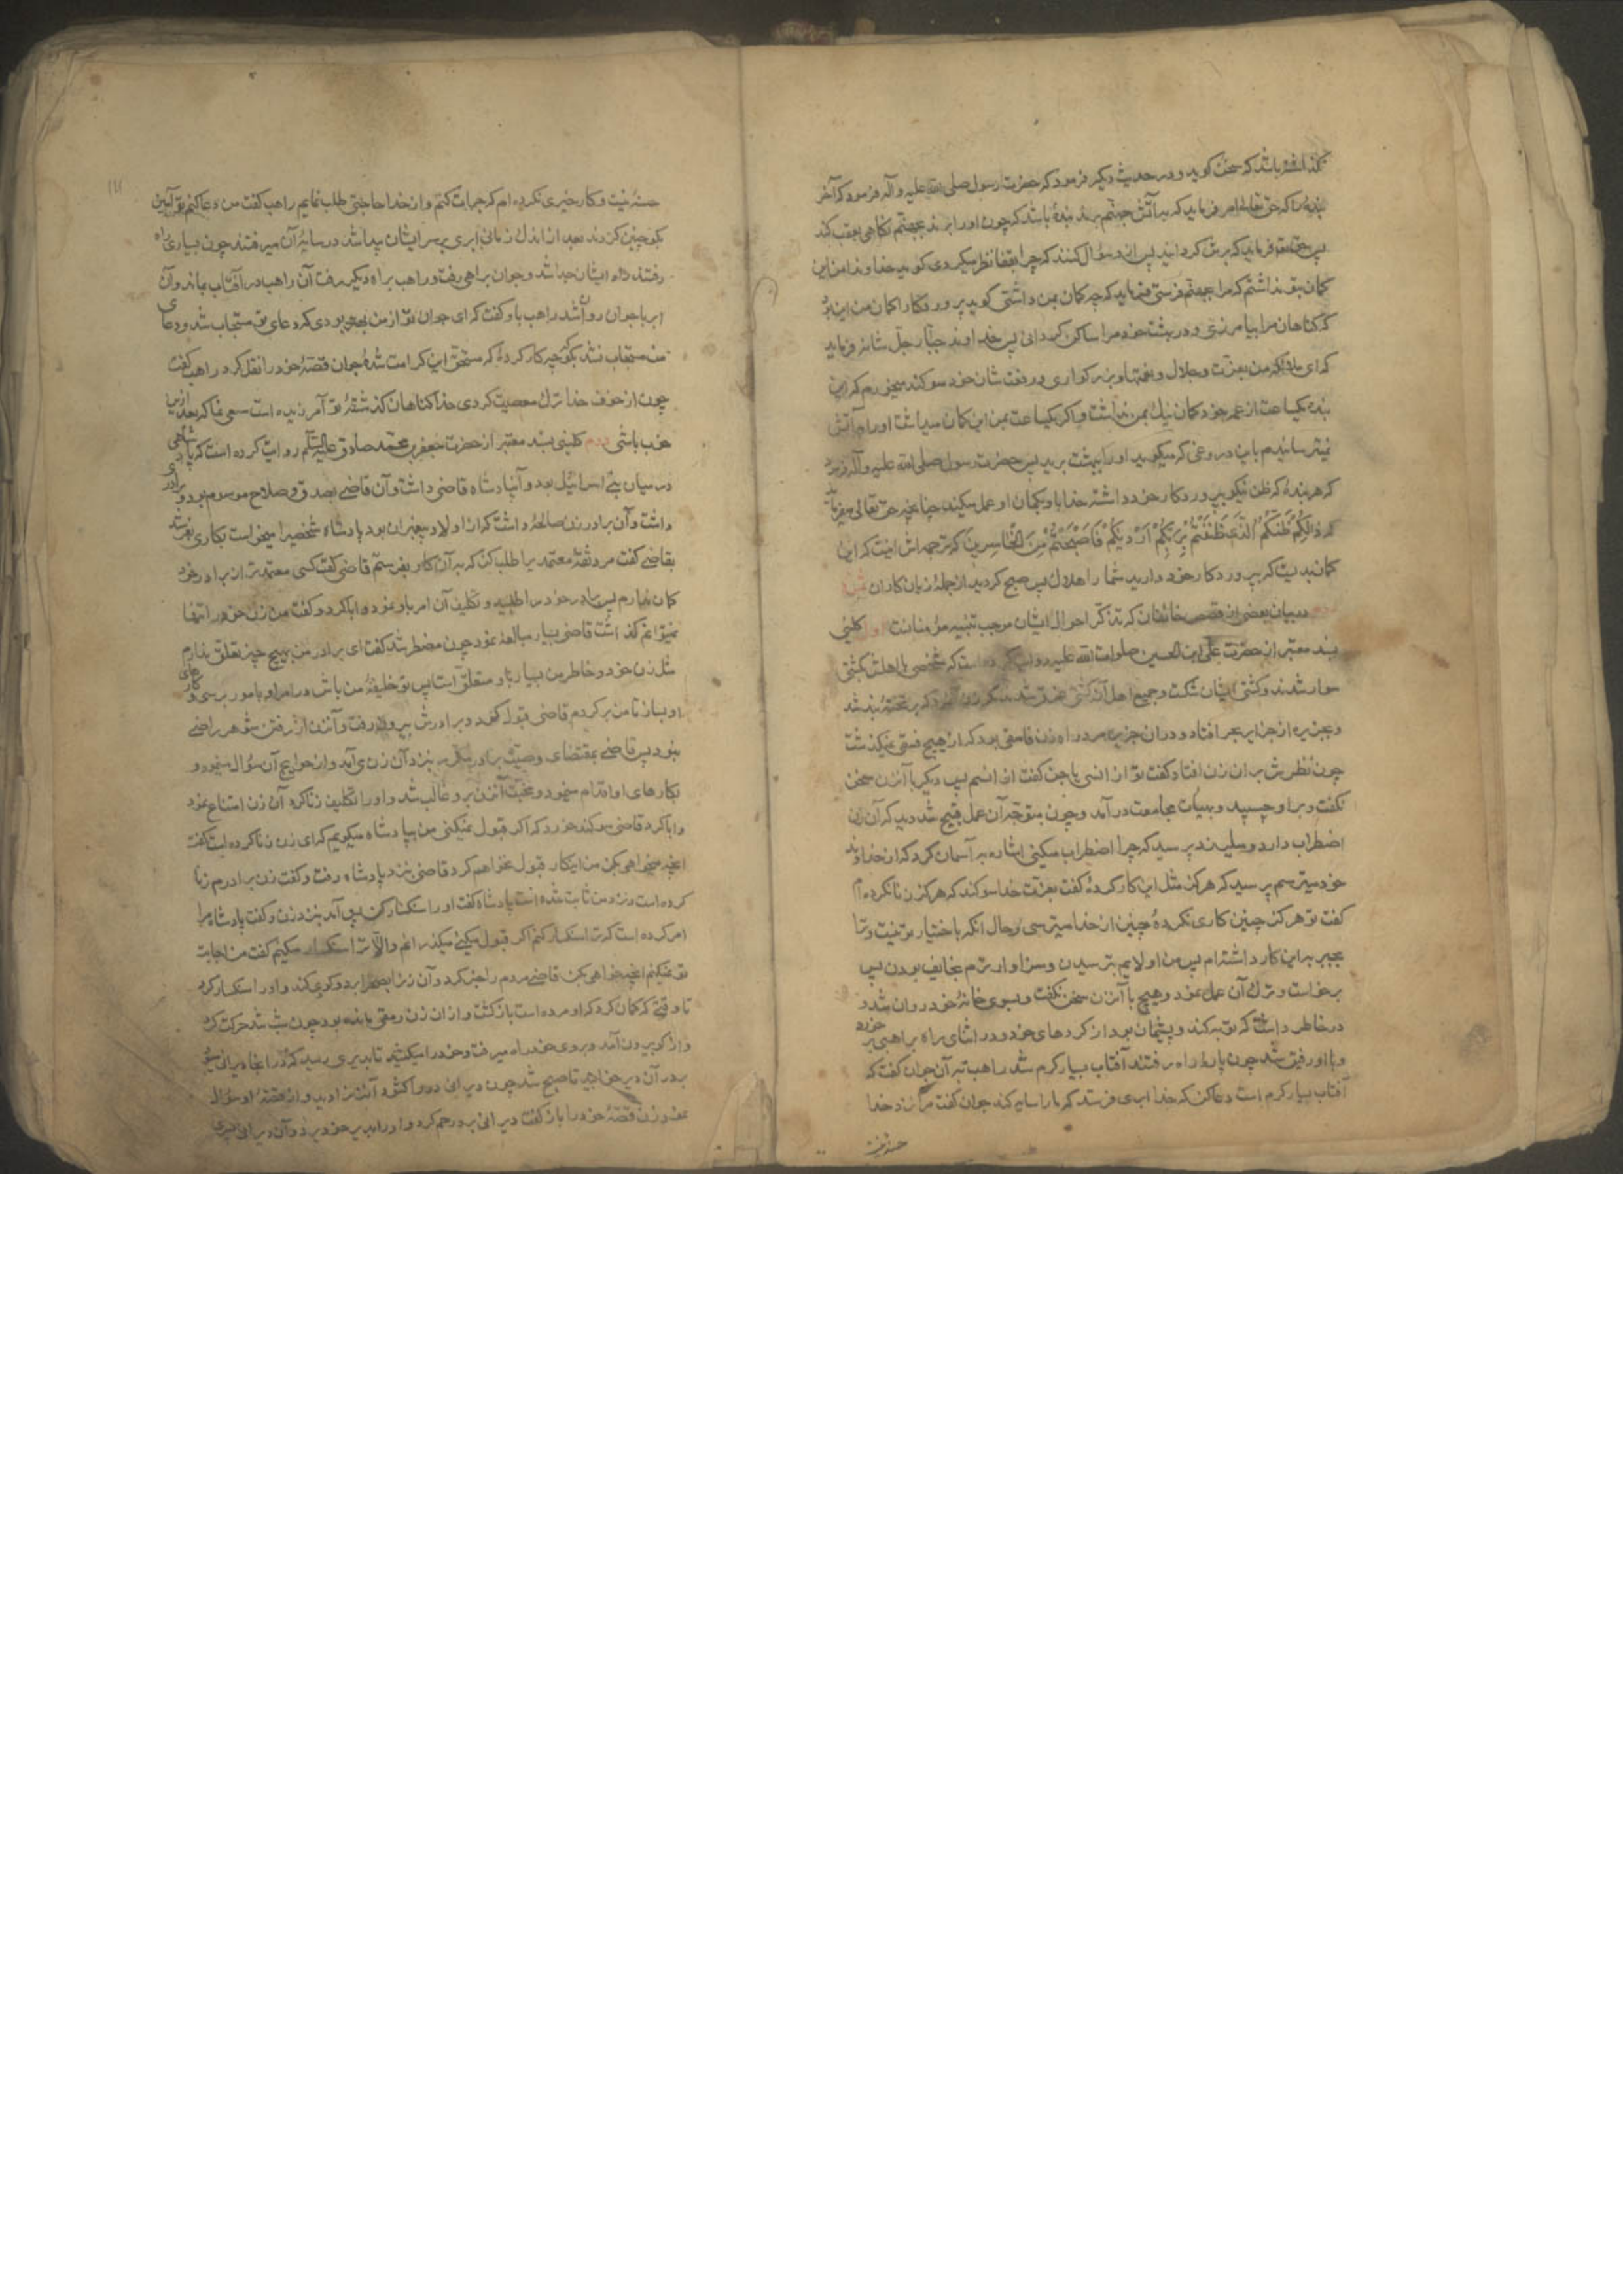 گذاشته باشد که سخن گوید و در حدیث دیگر فرمود که حضرت رسول صلی الله علیه و آله فرمود که آخر
بنده را که حق تعالی امر فرماید که به آتش جهنم برند بندهٔ باشد که چون او را برند بجهنم نگاهی بعقب کند
پس حقتعالی فرماید که برش گردانید پس از و سؤال کنند که چرا بقفا نظر میکردی گوید خداوندا من این
گمان بتو نداشتم که مرا بجهنم فرستی فرماید که چه گمان بمن داشتی گوید پروردگارا گمان من این بود
که گناهان مرا بیامرزی و در بهشت خود مرا ساکن گردانی پس خداوند جبار جل شانه فرماید
که ای ملائکه من بعزت و جلال و نعمتها و بزرگواری و رفعت شان خود سوگند میخورم که این
بنده یکساعت از عمر خود گمان نیک بمن نداشت و اگر یکساعت بمن این گمان میداشت او را به آتش
نمیترسانیدم باین دروغی که میگوید او را ببهشت برید پس حضرت رسول صلی الله علیه و آله فرمود
که هر بندهٔ که ظن نیکو بپروردگار خود داشته خدا باو بگمان او عمل میکند چنانچه حق تعالی میفرماید
که ذَالِکُمْ ظَنُّکُمُ الَّذِی ظَنَنْتُمْ بِرَبِّکُمْ اَرْدیکُمْ فَاَصْبَحْتُمْ مِنَ الْخاسِرینَ که ترجمه اش اینست که این
گمان بدیست که بپروردگار خود دارید شما را هلاک پس صبح کردید از جملهٔ زیان کاران
در بیان بعضی از قصص خائفان که تذکر احوال ایشان موجب تنبیه مؤمنانست اول کلینی
بسند معتبر از حضرت علی ابن الحسین صلوات الله علیه روایت کرده است که شخصی با اهلش بکشتی
سوار شدند و کشتی ایشان شکست و جمیع اهل آن کشتی غرق شدند مگر زن آنمرد که بر تختهٔ بند شد
و بجزیره از جزایر بحر افتاد و در ان جزیره مرد راه زن فاسقی بود که از هیچ فسقی نمیگذشت
چون نظرش بر ان زن افتاد گفت تو از انسی یا جن گفت از انسم پس دیگر با آنزن سخن
نگفت و بر او چسپید و بهیأت مجامعت درآمد و چون متوجه آن عمل قبیح شد دید که آن زن
اضطراب دارد و میلرزد پرسید که چرا اضطراب میکنی اشاره به آسمان کرد که از خداوند
خود میترسم پرسید که هرگز مثل این کار کردهٔ گفت بعزت خدا سوگند که هرگز زنا نکرده ام
گفت تو هرگز چنین کاری نکردهٔ چنین از خدا میترسی و حال آنکه باختیار تو نیست و ترا
بجبر به این کار داشته ام پس من اولایم بترسیدن و سزاوار ترم بخایف بودن پس
برخواست و ترک آن عمل نمود و هیچ با آنزن سخن نگفت و بسوی خانهٔ خود روان شد و
در خاطر داشت که توبه کند و پشیمان بود از کردهای خود و در اثنای راه براهبی بر خورد
و با او رفیق شد چون پارهٔ راه رفتند آفتاب بسیار گرم شد راهب به آن جوان گفت که
آفتاب بسیار گرم است دعا کن که خدا ابری فرستد که ما را سایه کند جوان گفت مرا نزد خدا
حسنه نیست
حسنهٔ نیست و کار خیری نکرده ام که جرأت کنم و از خدا حاجتی طلب نمایم راهب گفت من دعا کنم تو آمین
بگو چنین کردند بعد از اندک زمانی ابری بر سر ایشان پیدا شد در سایهٔ آن میرفتند چون بسیاری راه
رفتند راه ایشان جدا شد و جوان براهی رفت و راهب براه دیگر رفت آن راهب در آفتاب بماند و آن
ابر با جوان روان شد راهب باو گفت که ای جوان تو از من بهتر بودی که دعای تو مستجاب شد و دعای
من مستجاب نشد بگو چه کار کردهٔ که مستحق این کرامت شدهٔ جوان قصهٔ خود را نقل کرد راهب گفت
چون از خوف خدا ترک معصیت کردی خدا گناهان گذشتهٔ تو آمرزیده است سعی نما که بعد ازین
خوب باشی دوم کلینی بسند معتبر از حضرت جعفر بن محمد صادق علیه السلم روایت کرده است که پادشاهی
در میان بنی اسرائیل بود و آنپادشاه قاضی داشت و آن قاضی بصدق و صلاح موسوم بود و برادری
داشت و آن برادر زن صالحهٔ داشت که از اولاد پیغمبران بود پادشاه شخصیرا میخواست بکاری بفرستد
بقاضی گفت مرد ثقهٔ معتمدیرا طلب کن که به آن کار بفرستم قاضی گفت کسی معتمدتر از برادر خود
گمان ندارم پس برادر خود را طلبید و تکلیف آن امر باو نمود او ابا کرد و گفت من زن خود را تنها
نمیتوانم گذاشت قاضی بسیار مبالغه نمود چون مضطر شد گفت ای برادر من بهیچ چیز تعلق ندارم
مثل زن خود و خاطر من بسیار باو متعلق است پس تو خلیفهٔ من باش در امر او بامور برسی و کارهای
او بساز تا من بر گردم قاضی قبول نمود و برادرش بیرون رفت و آنزن از رفتن شوهر راضی
نبود پس قاضی بمقتضای وصیت برادر مکرر بنزد آن زن می آمد و از حوایج آن سؤال مینمود و
بکارهای او اقدام مینمود و محبت آنزن بر و غالب شد و او را تکلیف زنا کرد آن زن امتناع نمود
و ابا کرد قاضی سوگند خورد که اگر قبول نمیکنی من بپادشاه میگویم که ای زن زنا کرده است گفت
انچه میخواهی بکن من اینکار قبول نخواهم کرد قاضی بنزد پادشاه رفت و گفت زن برادرم زنا
کرده است و نزد من ثابت شده است پادشاه گفت او را سنگسار کن پس آمد بنزد زن و گفت پادشاه مرا
امر کرده است که ترا سنگسار کنم اگر قبول میکنی میگذرانم و الا ترا سنگسار میکنم گفت من اجابت
تو نمیکنم انچه خواهی بکن قاضی مردم را خبر کرد و آن زنرا بصحرا برد و گوی کند و او را سنگسار کرد
تا وقتی که گمان کرد که او مرده است بازگشت و از ان زن رمقی مانده بود چون شب شد حرکت کرد
و از گو بیرون آمد و بروی خود راه میرفت و خود را میکشید تا بدیری رسید که در انجا دیرانی بود
بدر آن دیر خوابید تا صبح شد چون دیرانی در را گشود آنزنرا دید و از قصهٔ او سؤال
نمود زن قصهٔ خود را باز گفت دیرانی برو رحم کرد و او را بدیر خود برد و آن دیرانی پسری